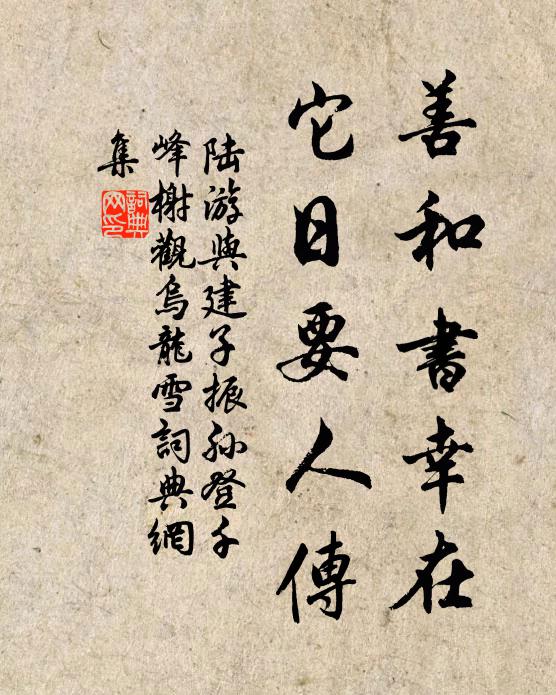 善和書幸在
它日要人傳
陆游與建子振孙登千
峰榭觀烏龍雪詞典網
集
詞典網印